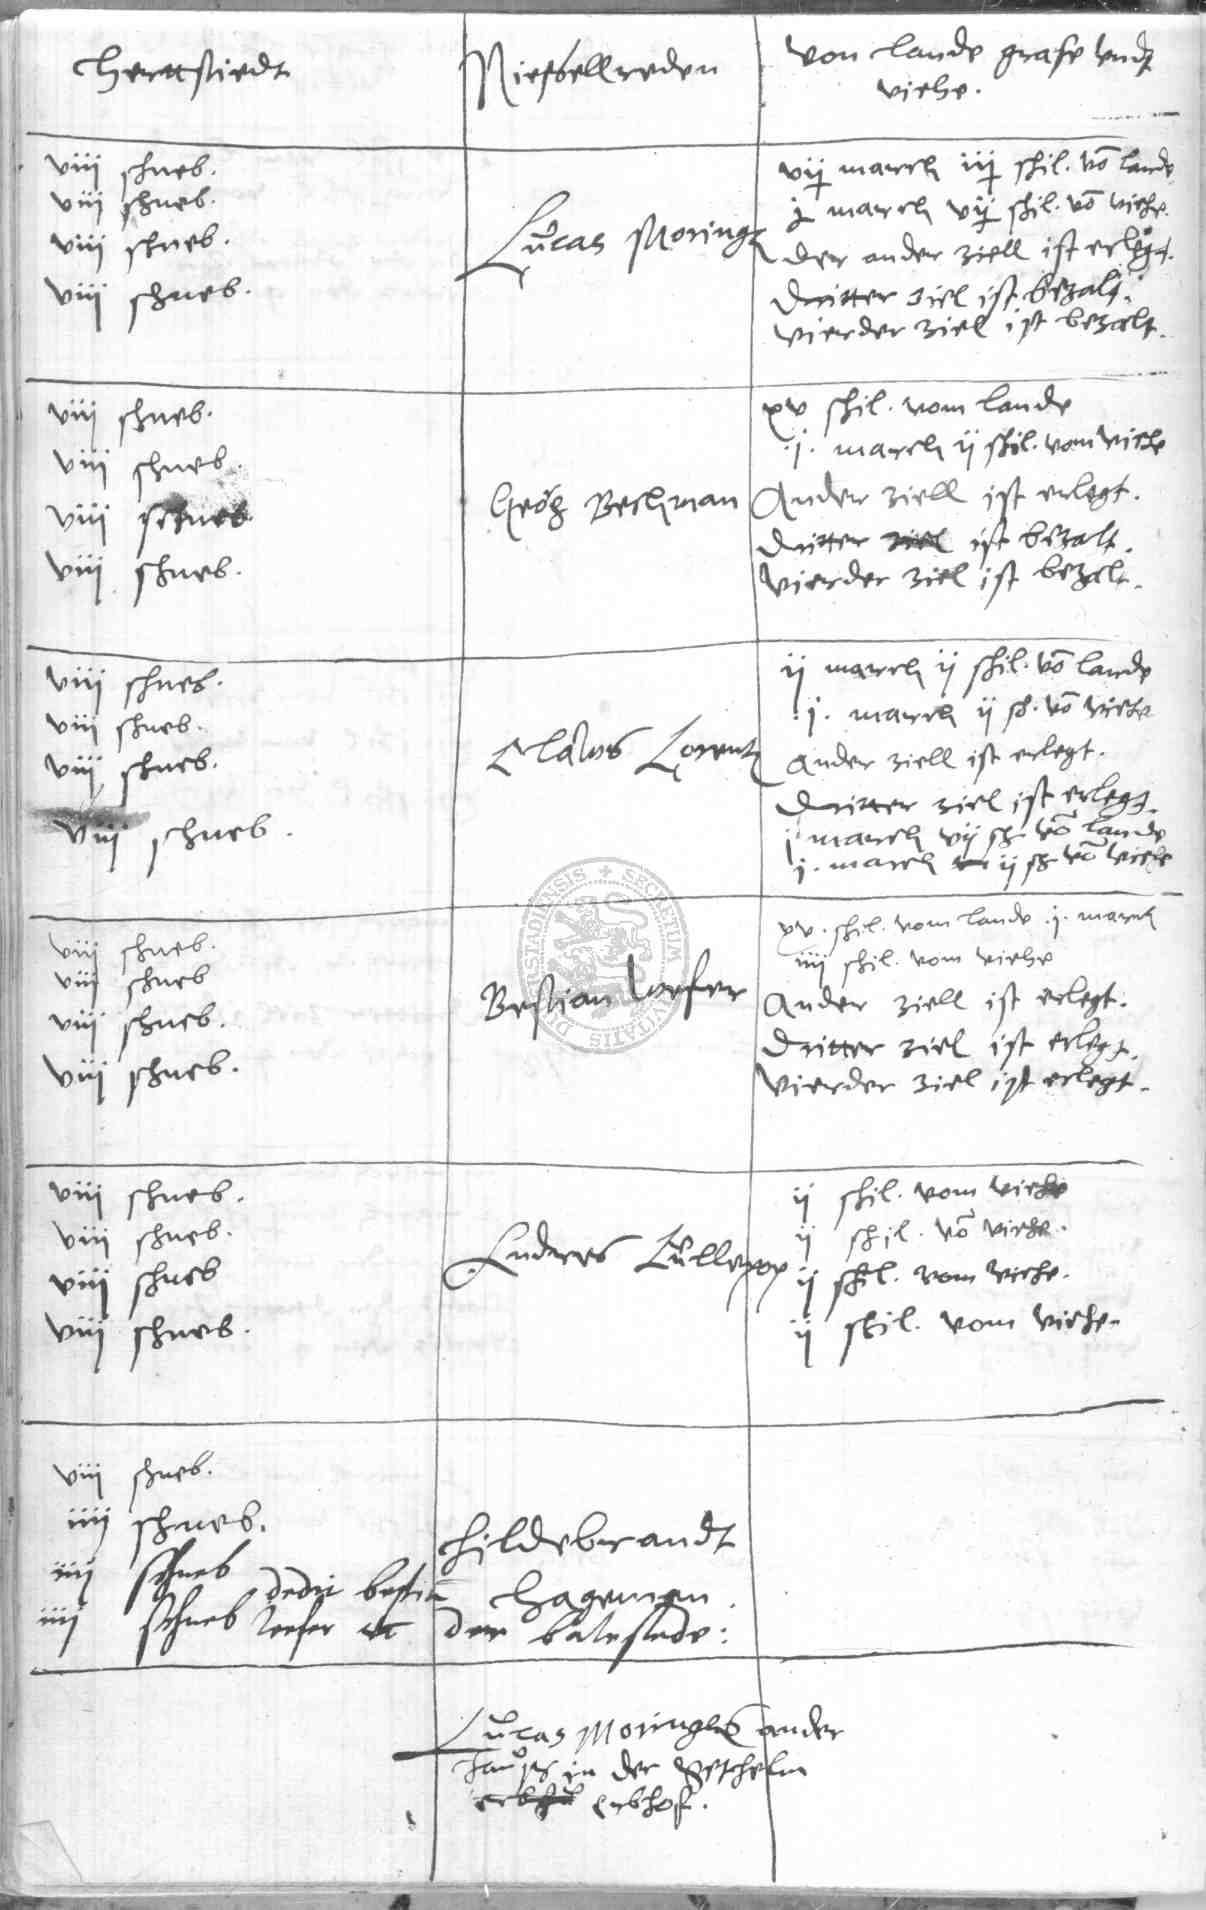 Herttstiedt
Niessellreden
von lande grase undt
viehe.
viij schneb.
viij schneb.
viij schneb.
viij schneb.
Lucas Moring
march schil. vō lande
march schil. vō viehe.
der ander ziell ist erlegt.
dritter ziel ist bezalt.
vierder ziel ist bezalt.
viij schneb.
viij schneb.
viij schneb.
viij schneb.
Beckman
xv schil. vom lande
.j. march ij schil. vom viehe
Ander ziell ist erlegt.
dritter ziel ist bezalt.
Vierder ziel ist bezalt.
viij schneb.
viij schneb.
viij schneb.
viij schneb.
Clawes Lorentz
ij march ij schil. vō lande
.j. march ij sch. vō viehe
Ander ziell ist erlegt.
dritter ziel ist erlegt.
j march vij sch vō lande
j. march ij sch vō viehe
viij schneb.
viij schneb
viij schneb.
viij schneb.
Bestian
xv. schil. vom lande .j. march
iiij schil. vom viehe
Ander ziell ist erlegt.
Dritter ziel ist erlegt.
Vierder ziel ist erlegt.
viij schneb.
viij schneb.
viij schneb
viij schneb.
Luderes Cullepop
ij schil. vom viehe
ij schil. vō viehe.
ij schil. vom viehe.
ij schil. vom viehe.
viij schneb.
iiij schneb.
iiij schneb dedit bestiā
iiij schneb
Hildebrandt
Hageman.
der
Lucas Moringes ander
hauss in der
erbhof.
SECRETUM